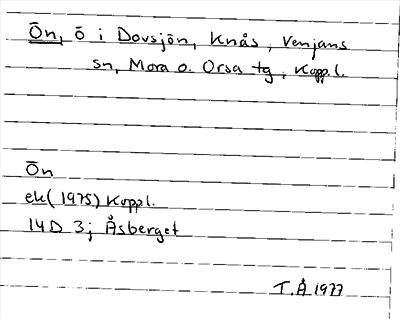 Ön, ö i Dovsjön, Knås, Venjans
sn, Mora o. Orsa tg, Koppl.
Ön
ek (1975) Koppl.
14D 3j Åsberget
T.Å 1977